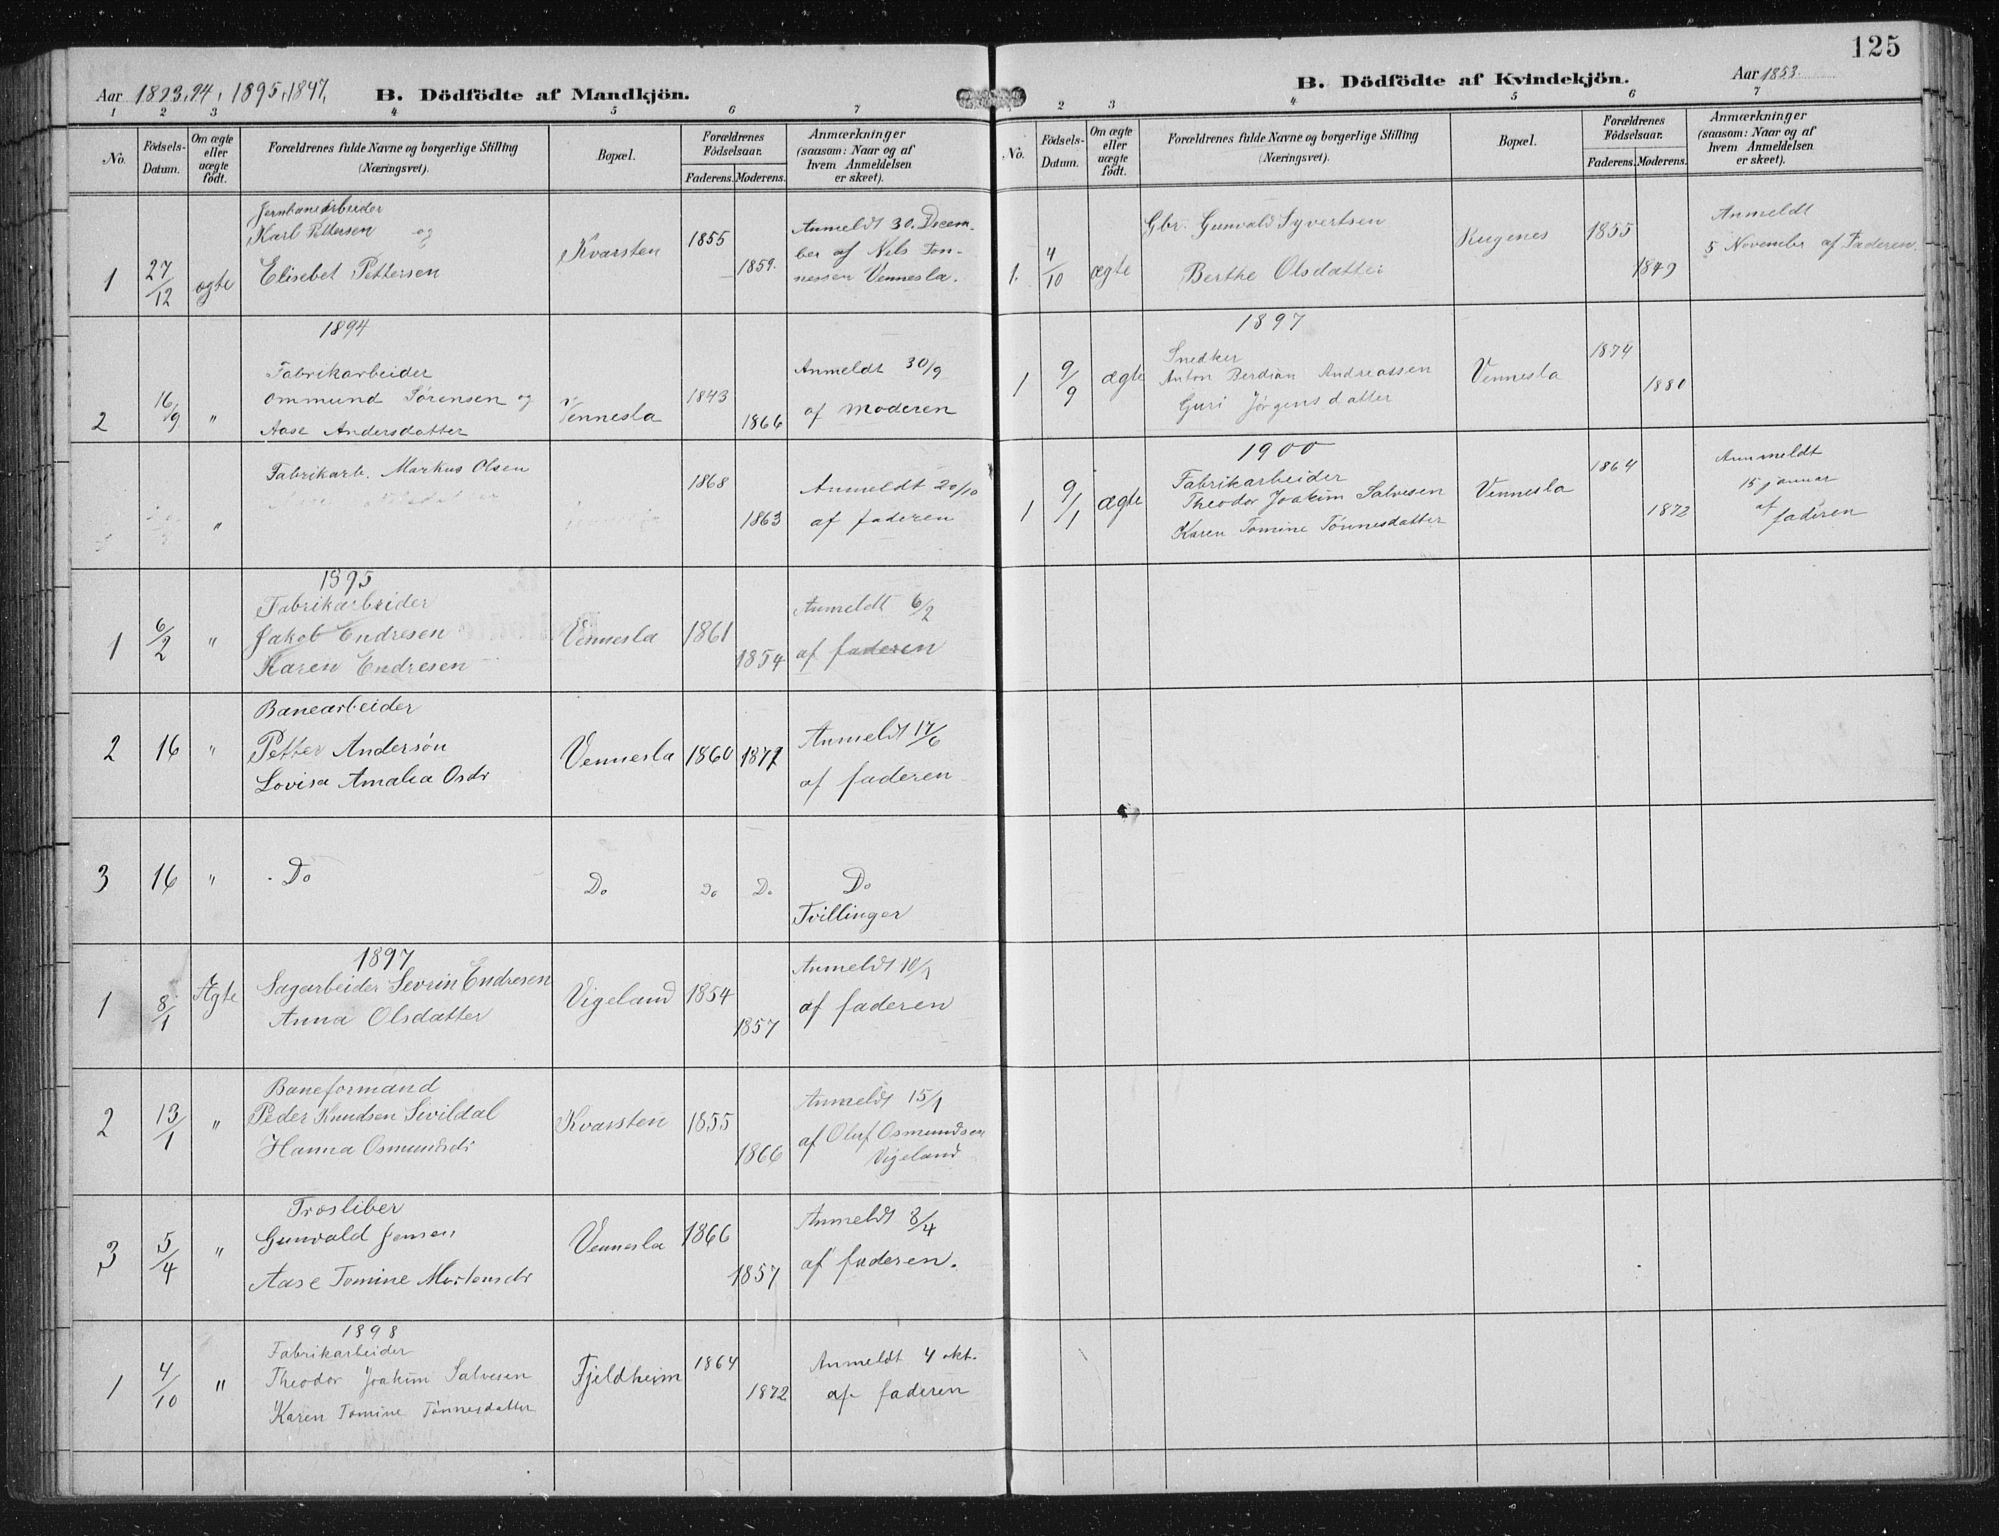 125
Aar 1893, 94, 1895, 1897,
B. Dödfödte af Mandkjön.
1 2 3 4 5 6 7
No.
Födsels-Datum.
Om ægte eller uægte födt.
Forældrenes fulde Navne og borgerlige Stilling (Næringsvei).
Bopæl.
Forældrenes Födselsaar.
Faderens. Moderens.
Anmærkninger (saasom: Naar og af hvem Anmeldelsen er skeet).
Jernbanearbeider
Karl Pettersen og
Elisebet Pettersen
1 27/12 ægte Kvarsten 1855 1859.
Anmeldt 30. Decem-
ber af Nils Ton-
nessen Vennesla.
1894
Fabrikarbeider
Ommund Sørensen og
Aase Andersdatter
2 16/9 " Vennesla 1843 1866
Anmeldt 30/9
af Moderen
Fabrikarb. Markus Olsen
" 1868 1863
Anmeldt 20/10
af faderen
1895
Fabrikarbeider
Jakob Endresen
Karen Endresen
1 6/2 " Vennesla 1861 1854
Anmeldt 6/2
af faderen
Banearbeider
Petter Andersön
Lovisa Amalia Osdr
2 16 " Vennesla 1860 1872
Anmeldt 17/6
af faderen
3 16 " Do Do Do Do Do
Tvillinger
1897
Sagarbeider Sevrin Endresen
Anna Olsdatter
1 8/1 Ægte Vigeland 1854 1857
Anmeldt 10/1
af faderen
Baneformand
Peder Knudsen Sivildal
Hanna Osmundsdr
2 13/1 " Kvarsten 1855 1866
Anmeldt 15/1
af Oluf Osmundsen
Vigeland
Træsliber
Gunvald Jensen
Aase Tomine Mortensdr
3 5/4 " Vennesla 1866 1857
Anmeldt 8/4
af faderen.
1898
Fabrikarbeider
Theodor Joakim Salvesen
Karen Tomine Tönnesdatter
1 4/10 " Fjeldheim 1864 1872
Anmeldt 4 okt.
af faderen
B. Dödfödte af Kvindekjön.
Aar 1853.
2 3 4 5 6 7
No.
Födsels-Datum.
Om ægte eller uægte födt.
Forældrenes fulde Navne og borgerlige Stilling (Næringsvei).
Bopæl.
Forældrenes Födselsaar.
Faderens. Moderens.
Anmærkninger (saasom: Naar og af hvem Anmeldelsen er skeet).
Gbr. Gunvald Syvertsen
Berthe Olsdatter
1. 4/10 ægte Rugenes 1855 1849
Anmeldt
5 November af Faderen.
1897
Snedker
Anton Berdian Andreassen
Guri Jörgensdatter
1 9/9 ægte Vennesla 1874 1880
1900
Fabrikarbeider
Theodor Joakim Salvesen
Karen Tomine Tönnesdatter
1 9/1 ægte Vennesla 1864 1872
Anmeldt
15 januar
af
faderen